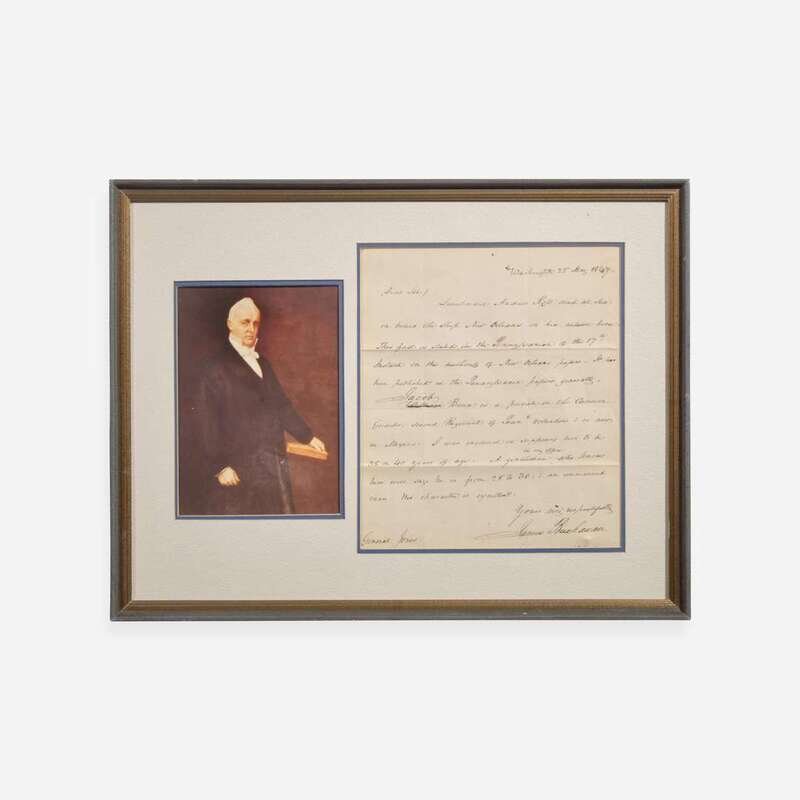 Washington 25 May 1847.
Dear Sir/
Lieutenant Andrew died at Sea
on board the Ship New Orleans on his return home.
This fact is stated in the Pennsylvanian of the 17th
Instant on the authority of New Orleans papers. It has
been published in the Pennsylvania papers, generally.
Jacob
is a private in the Cameron
Guards, second Regiment of Penna Volunteers & is now
in Mexico. I was in to be
in my office
35 a 40 years of age. A gentleman who knows
him well says he is from 28 to 30: & an unmarried
man. His character is excellent.
Yours very respectfully
James Buchanan
General Jones.